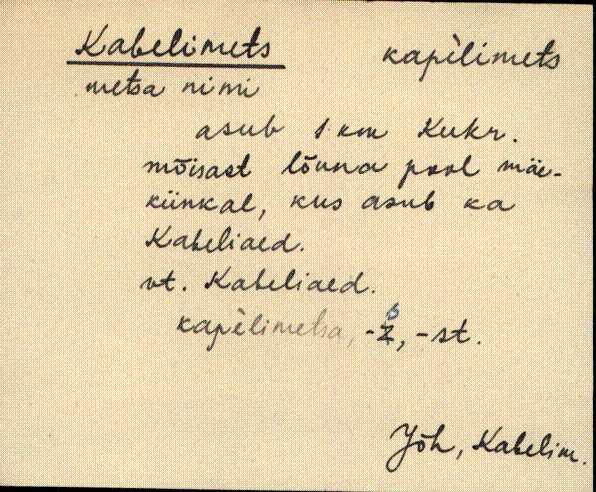 Kabelimets kapèlimets
metsa nimi
asub 1 km Kukr.
mõisast lõuna pool mäe-
künkal, kus asub ka
Kabeliaed.
vt. Kabeliaed.
kapèlimetsa, -s, -st.
Jõh, Kabelim.